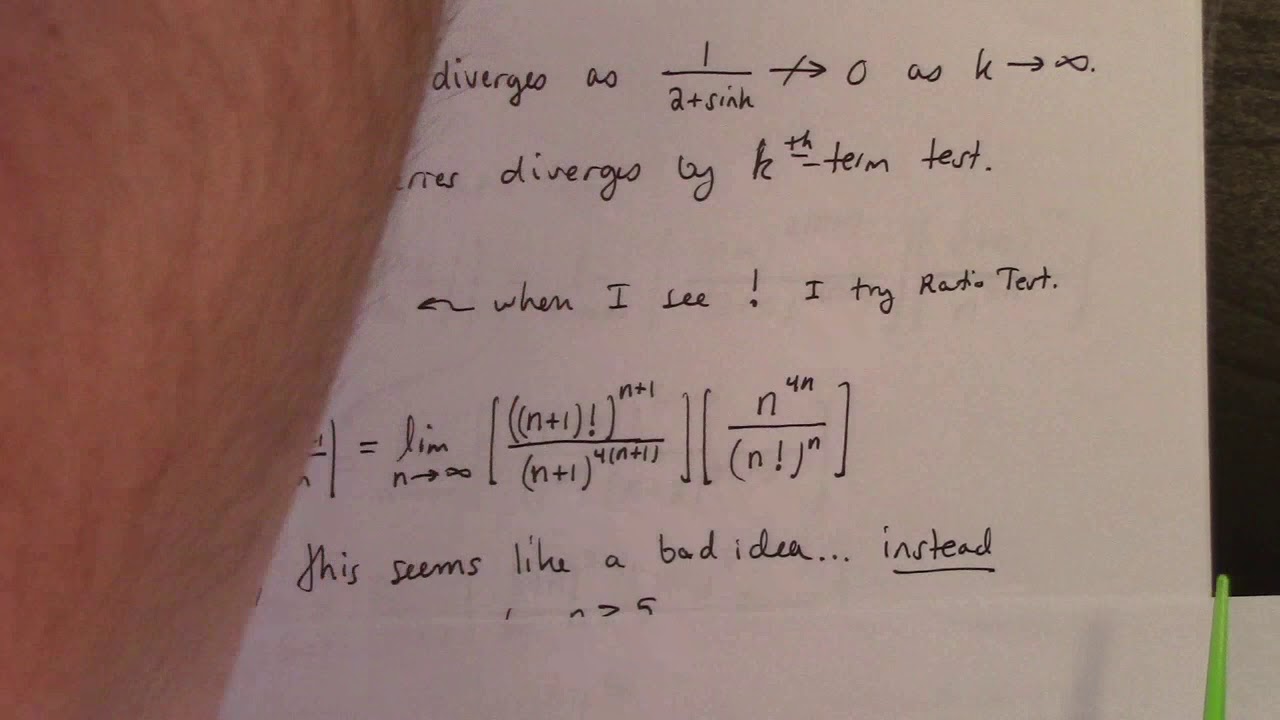 diverges as 1/(2+sin k) ↛ 0 as k → ∞.
diverges by k th-term test.
← when I see ! I try Ratio Test.
= lim n→∞ [((n+1)!)^(n+1) / (n+1)^(4(n+1))] [n^(4n) / (n!)^n]
this seems like a bad idea... instead
n > 5